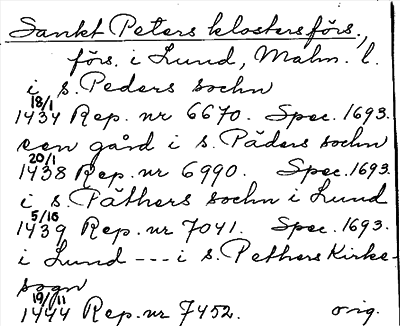 Sankt Peters klostersförs.,
förs. i Lund, Malm. l.
i s. Peders sochn
18/1
1434 Rep. nr 6670. Spec. 1693.
een gård i s. Päders sochn
20/1
1438 Rep. nr 6990. Spec. 1693
i s. Päthers sochn i Lund
5/10
1439 Rep. nr 7041. Spec. 1693.
i Lund --- i s. Pethers Kirke-
sogn
19/11
1444 Rep. nr 7452. orig.